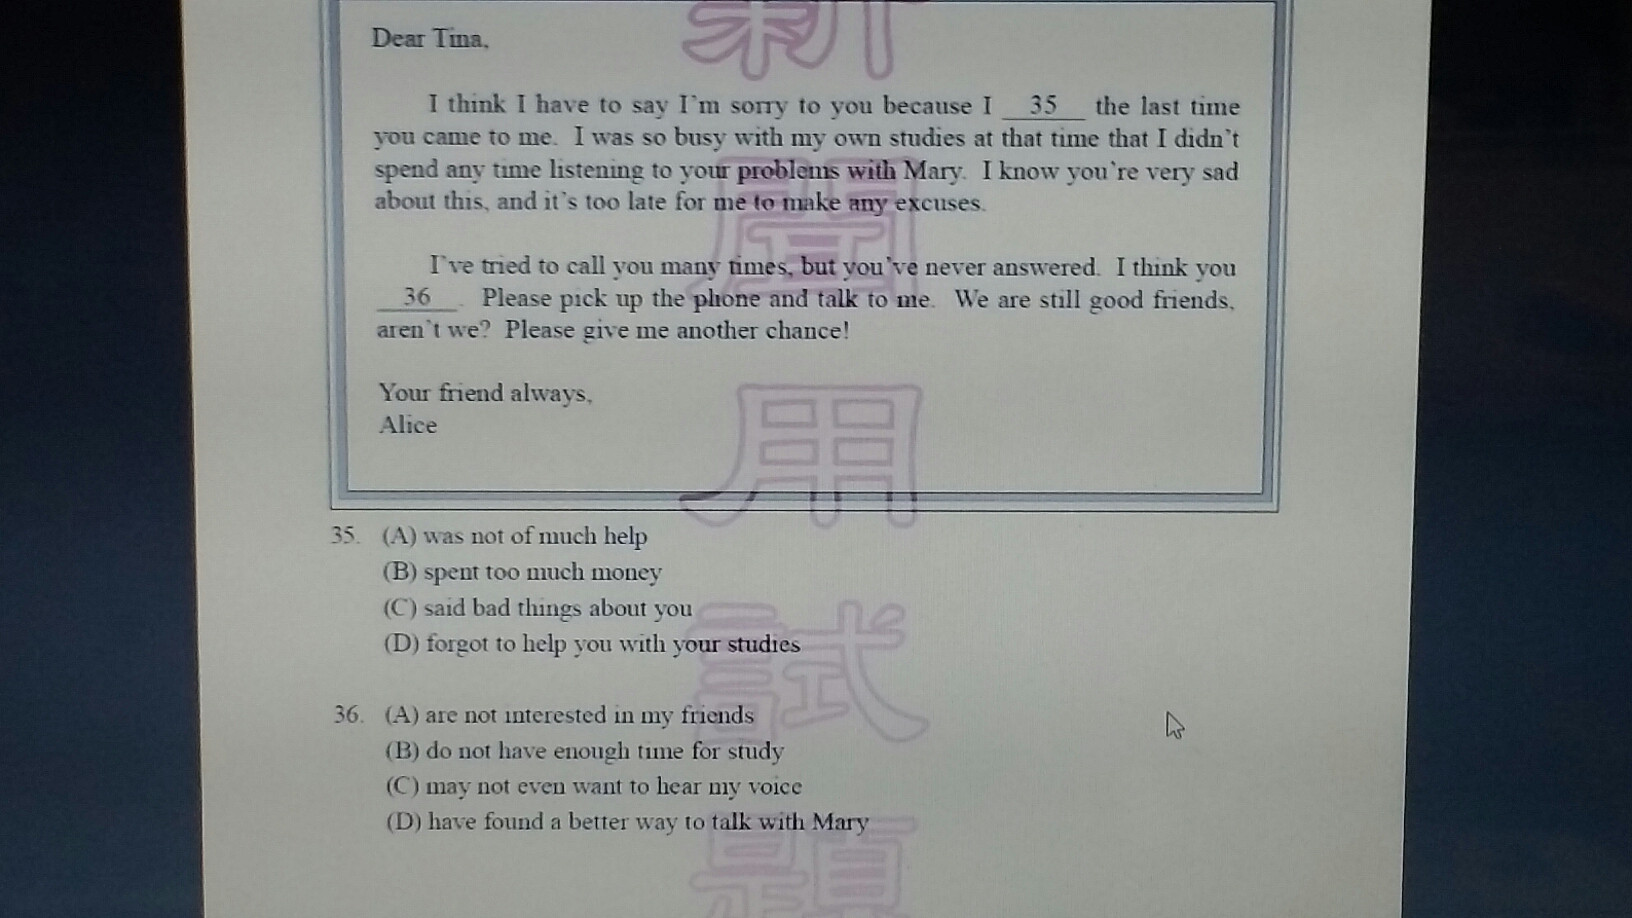 新
Dear Tina,
I think I have to say I'm sorry to you because I 35 the last time
you came to me. I was so busy with my own studies at that time that I didn't
spend any time listening to your problems with Mary. I know you're very sad
about this, and it's too late for me to make any excuses.
聞
I've tried to call you many times, but you've never answered. I think you
36 . Please pick up the phone and talk to me. We are still good friends,
aren't we? Please give me another chance!
Your friend always,
Alice
用
35. (A) was not of much help
(B) spent too much money
(C) said bad things about you
(D) forgot to help you with your studies
試
36. (A) are not interested in my friends
(B) do not have enough time for study
(C) may not even want to hear my voice
(D) have found a better way to talk with Mary
題